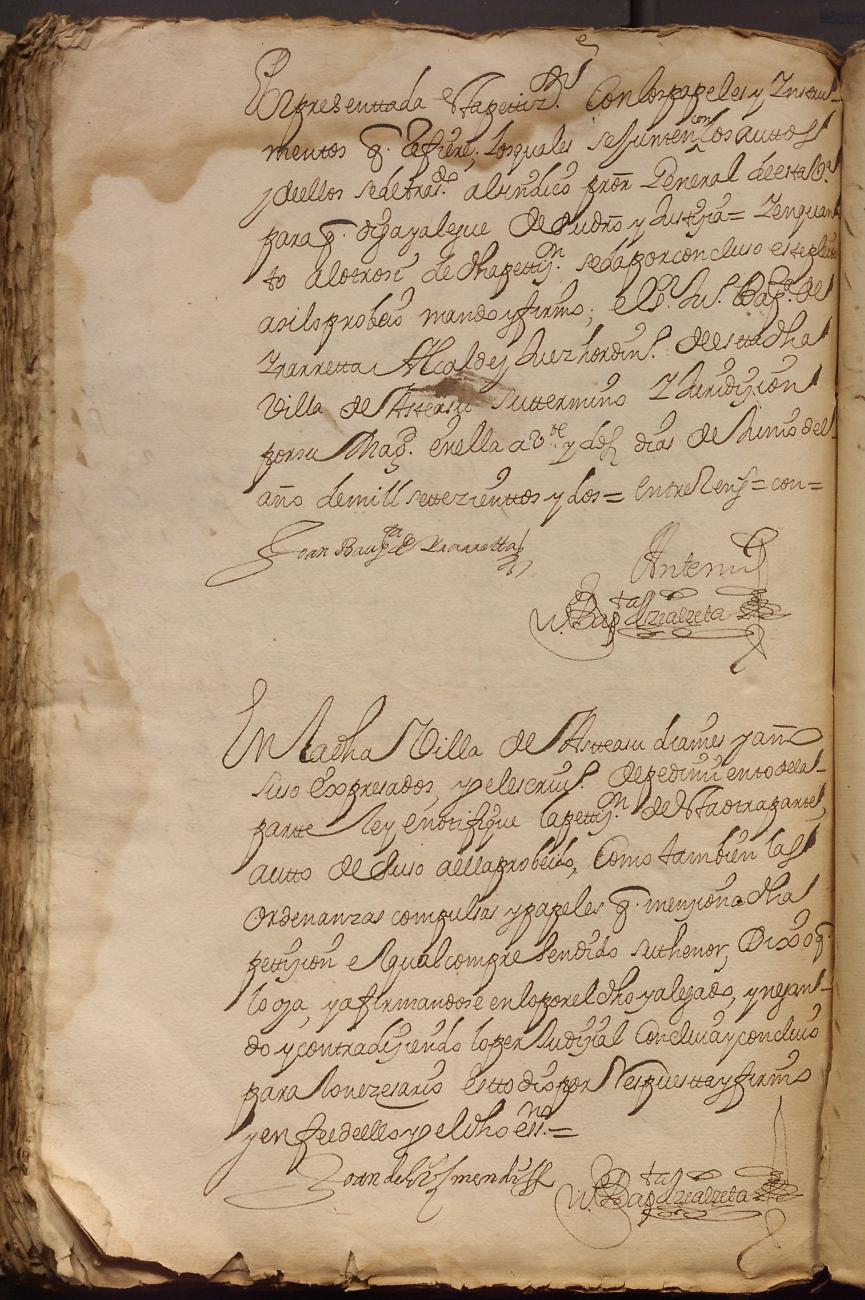 Por presenttada esta petiz.on Con los papeles y Instru-
mentos q. Refiere, los quales se junten con los auttos
y de ellos se de tras.do al sindico pror General de esta Va
para q. diga y alegue de su dro y Justiçia = Y en quan
to al otrosi de dha petiçi.on se da por concluso este pleito
asi lo probeio mando y firmo, el Sr Ju.o Bap.ta de
Yrarretta Alcalde y Juez hordin.o de estta dha
Villa de Asteasu su ttermino Y Juridiçion
por su Mag.d en ella a v.te y dos dias de Junio del
año de mill settezienttos y dos = entre Reng.s = con =
Joan Baup.ta de Yrarretta
Antemi
Bap.ta de Yzealzeta
En la dha Villa de Asteasu dia mes y año
suso expresados, yo el escriu.o de pedimiento de la
partte ley e notifique la petiçi.on de esta otra parte,
autto de suso a ella probeido, Como tambien las
ordenanzas compulsas y papeles q. mençiona dha
pettiçion el qual comprehendido su thenor, Dixo q.
lo oia, y afirmandose en lo por el dho y alegado, y negan-
do y contradiçiendo lo perjudiçial Concluia y concluio
para lo nezesario Estto dio por Respuestta y firmo
y en fee de ello yo el dho es.no =
Joan de
Bap.ta de Yzealzeta